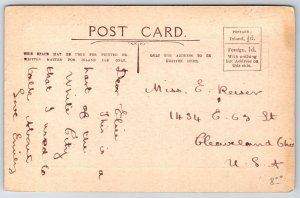 POST CARD.
THIS SPACE MAY BE USED FOR PRINTED OR
WRITTEN MATTER FOR INLAND USE ONLY.
ONLY THE ADDRESS TO BE
WRITTEN HERE.
Postage:
Inland, ½d.
Foreign, 1d.
With nothing
but Address on
this side.
Dear Elsie
This is a
part of the
White City
that I used to
talk about
Love Emily
Miss. E. Reeser
1434 E. 63 St
Cleaveland Ohio
U.S.A
8—